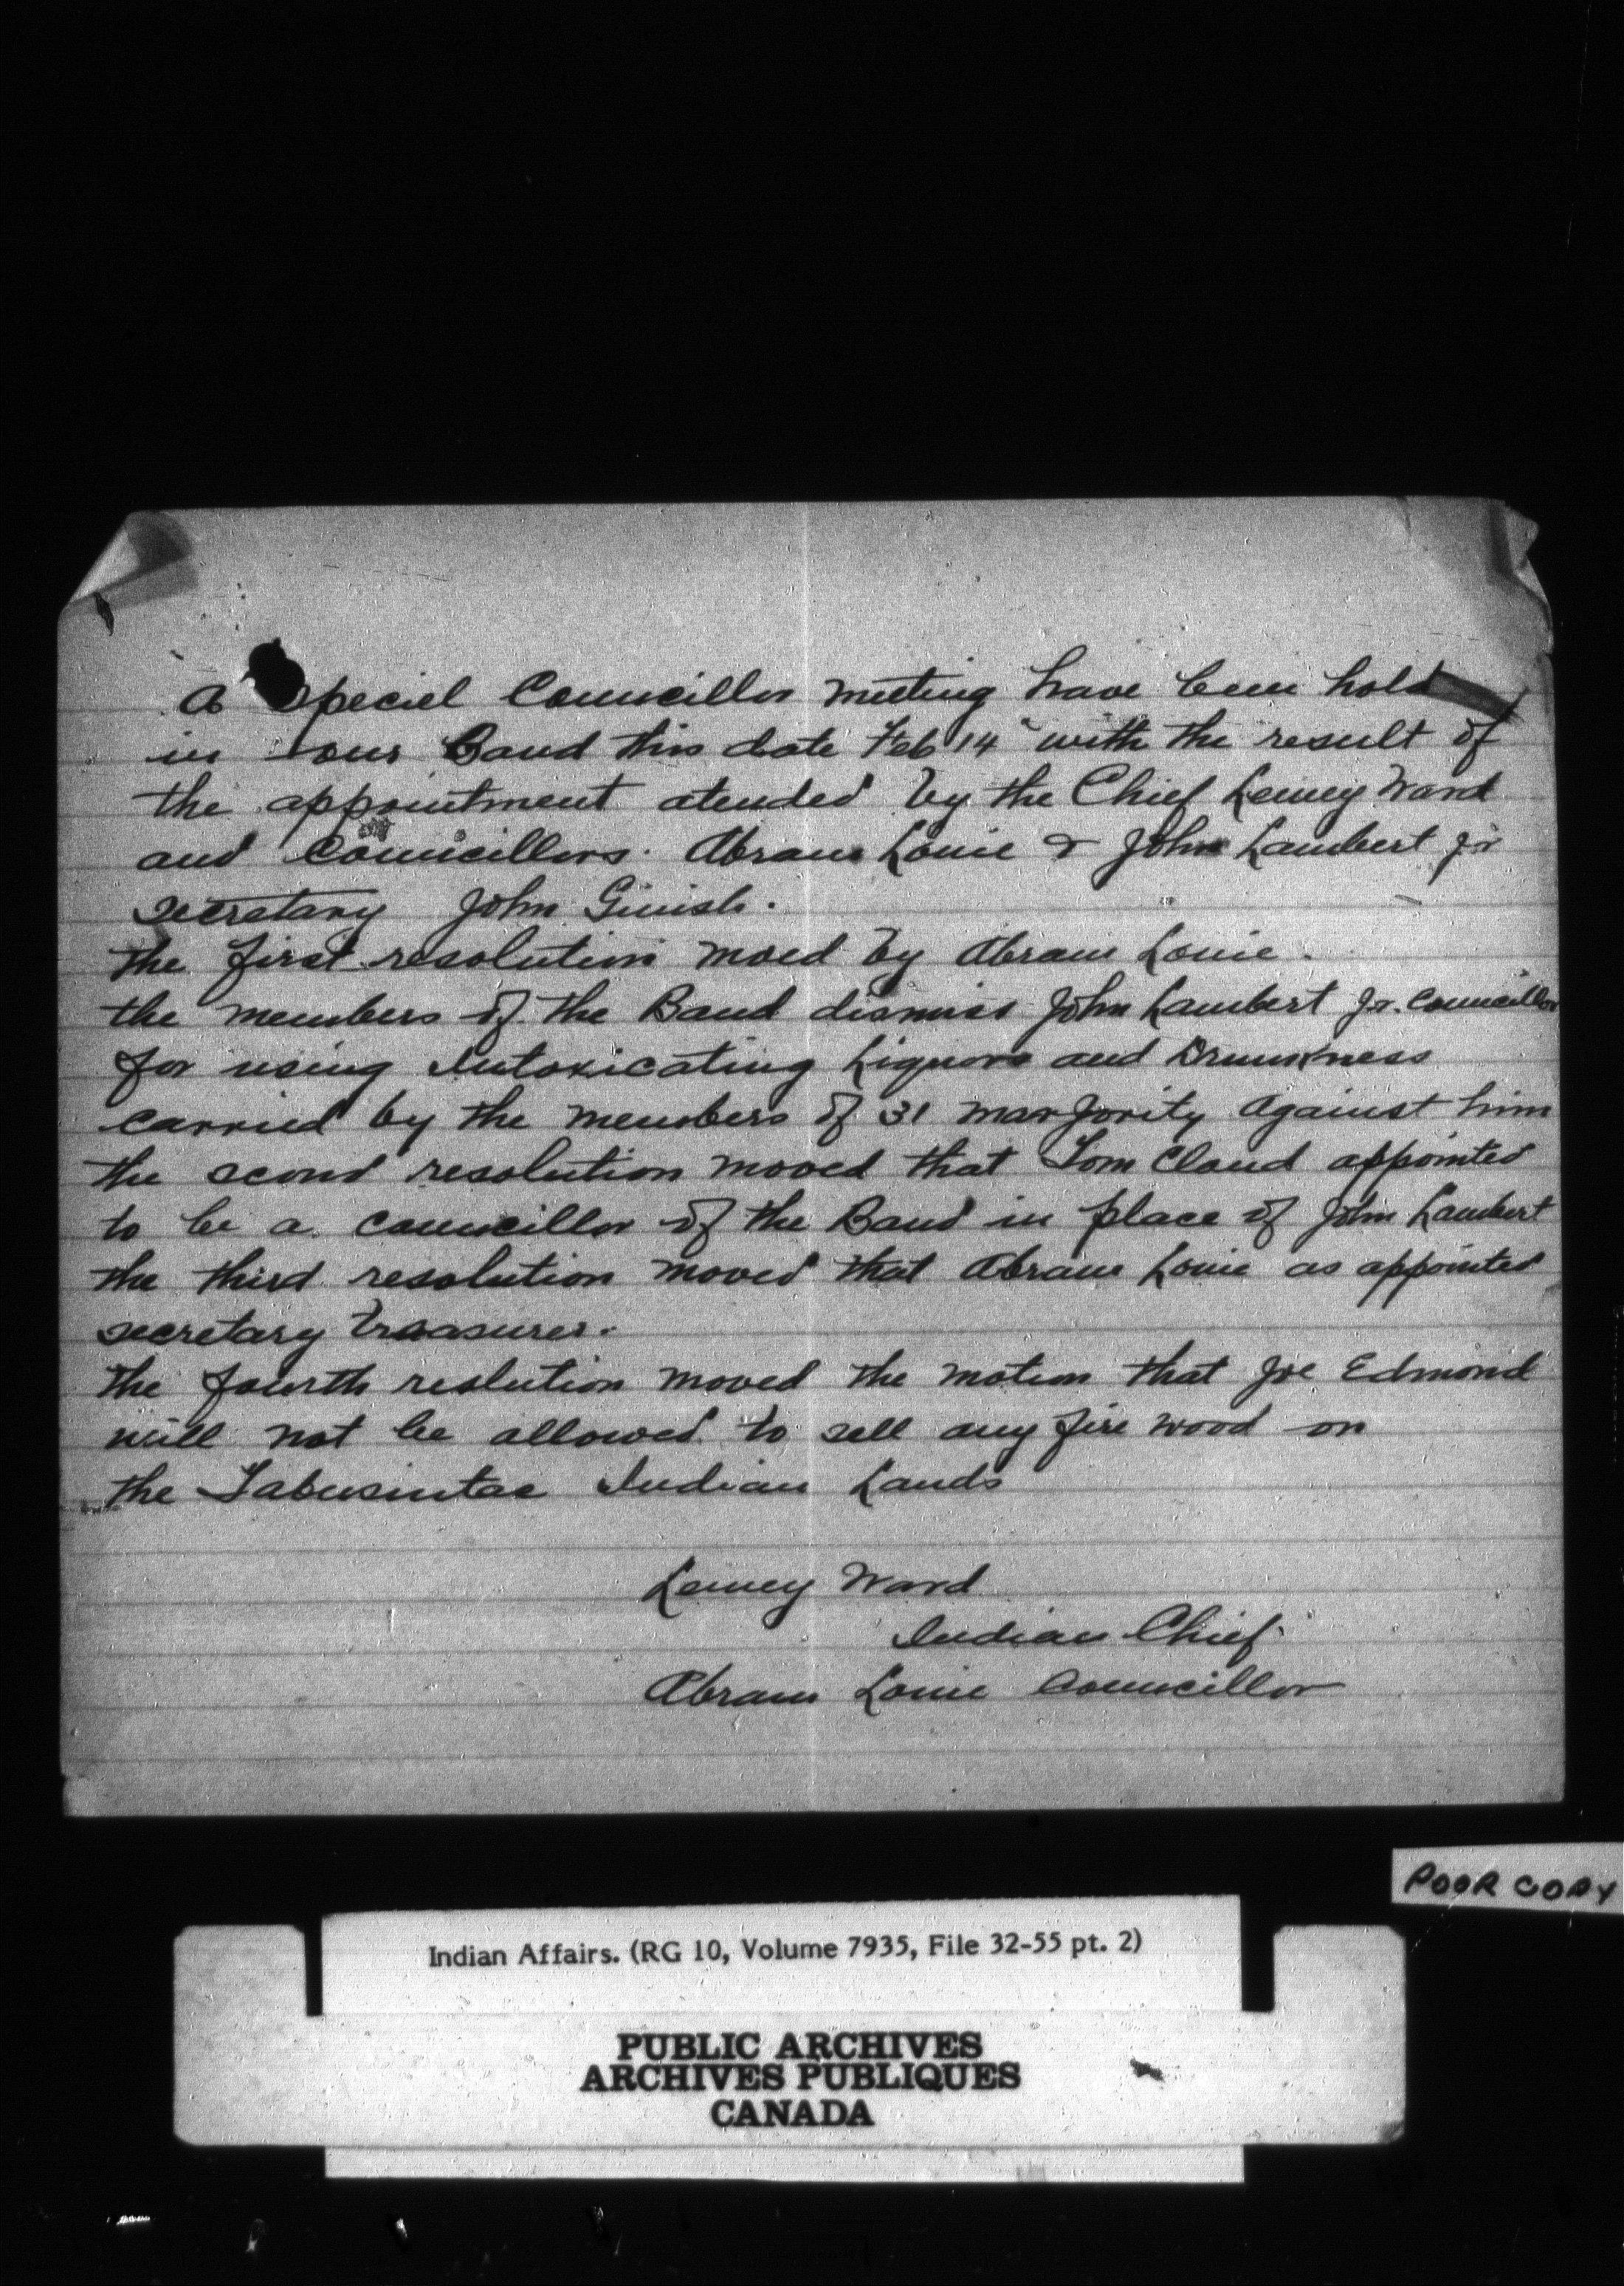 A Speciel Councillor meeting have been hold
in our Band this date Feb 14" with the result of
the appointment atended by the Chief Lemey Ward
and Councillors. Abram Louie & John Lambert Jr
Secretary John Ginish.
the first resolution moed by Abram Louie.
the members of the Band dismiss John Lambert Jr. Councillor
for using Intoxicating Liquors and Drunkness
carried by the members of 31 marjority Against him
the second resolution moved that Tom Cloud appointed
to be a councillor of the Band in place of John Lambert
the third resolution moved that Abram Louie as appointed
secretary treasurer.
the fourth reslution moved the motion that Joe Edmond
will not be allowed to sell any fire wood on
the Tabusintac Indian Lands
Lemey Ward
Indian Chief
Abram Louie Councillor
POOR COPY
Indian Affairs. (RG 10, Volume 7935, File 32-55 pt. 2)
PUBLIC ARCHIVES
ARCHIVES PUBLIQUES
CANADA